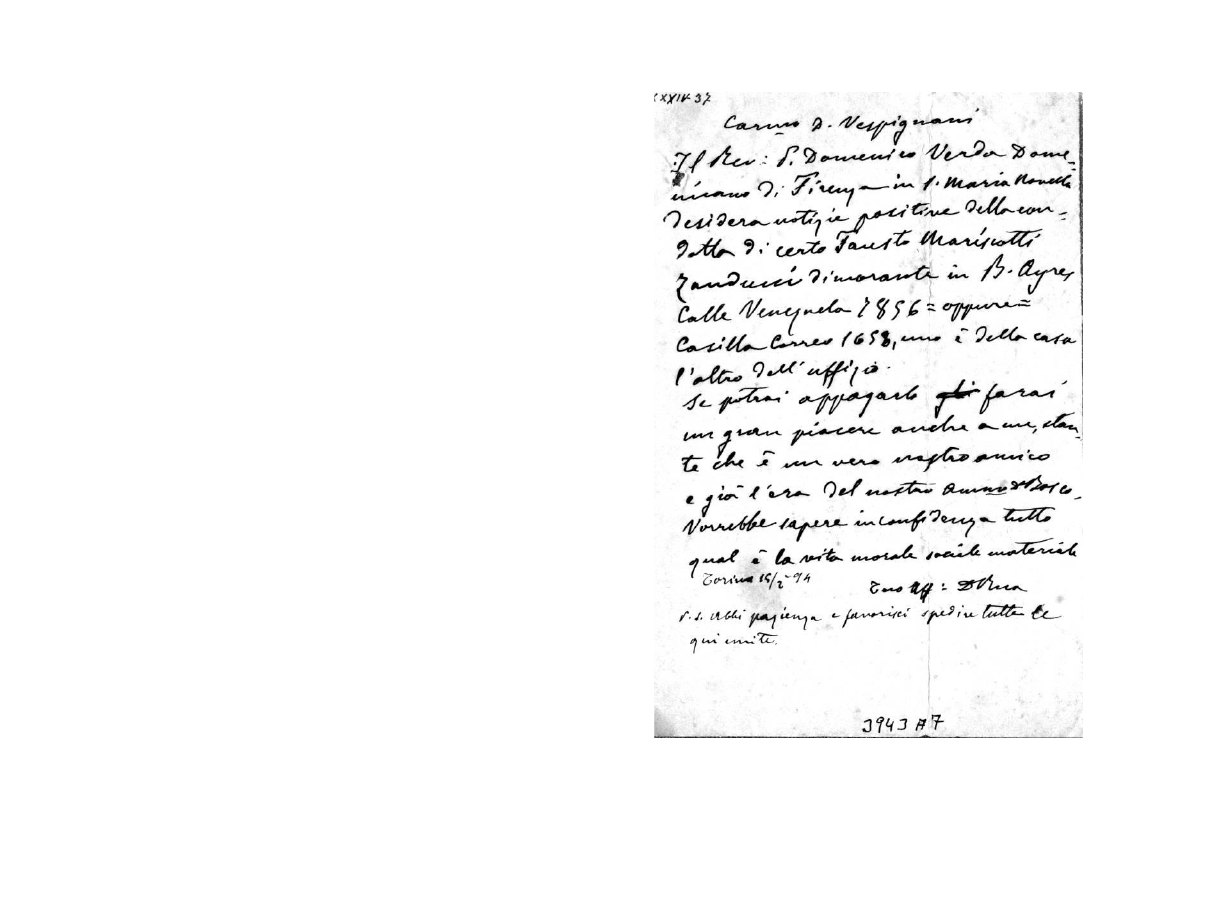 XXIV-37
Carmo D. Vespignani
Il Rev: P. Domenico Verda Dome-
nicano di Firenze in S. Maria Novella
desidera notizie positive della con-
dotta di certo Fausto Mariscotti
Zanducci dimorante in B. Ayres
Calle Venezuela 1856 = oppure =
Casilla Correo 1658, uno è della casa
l'altro dell'uffizio.
Se potrai appagarlo farai
un gran piacere anche a me, stan-
te che è un vero nostro amico
e già l'era del nostro ammo D Bosco.
Vorrebbe sapere in confidenza tutto
qual è la vita morale sociale materiale
Torino 94
Tuo aff: D Rua
P. S. Abbi pazienza e favorisci spedire tutte le
qui unite.
3943 A7